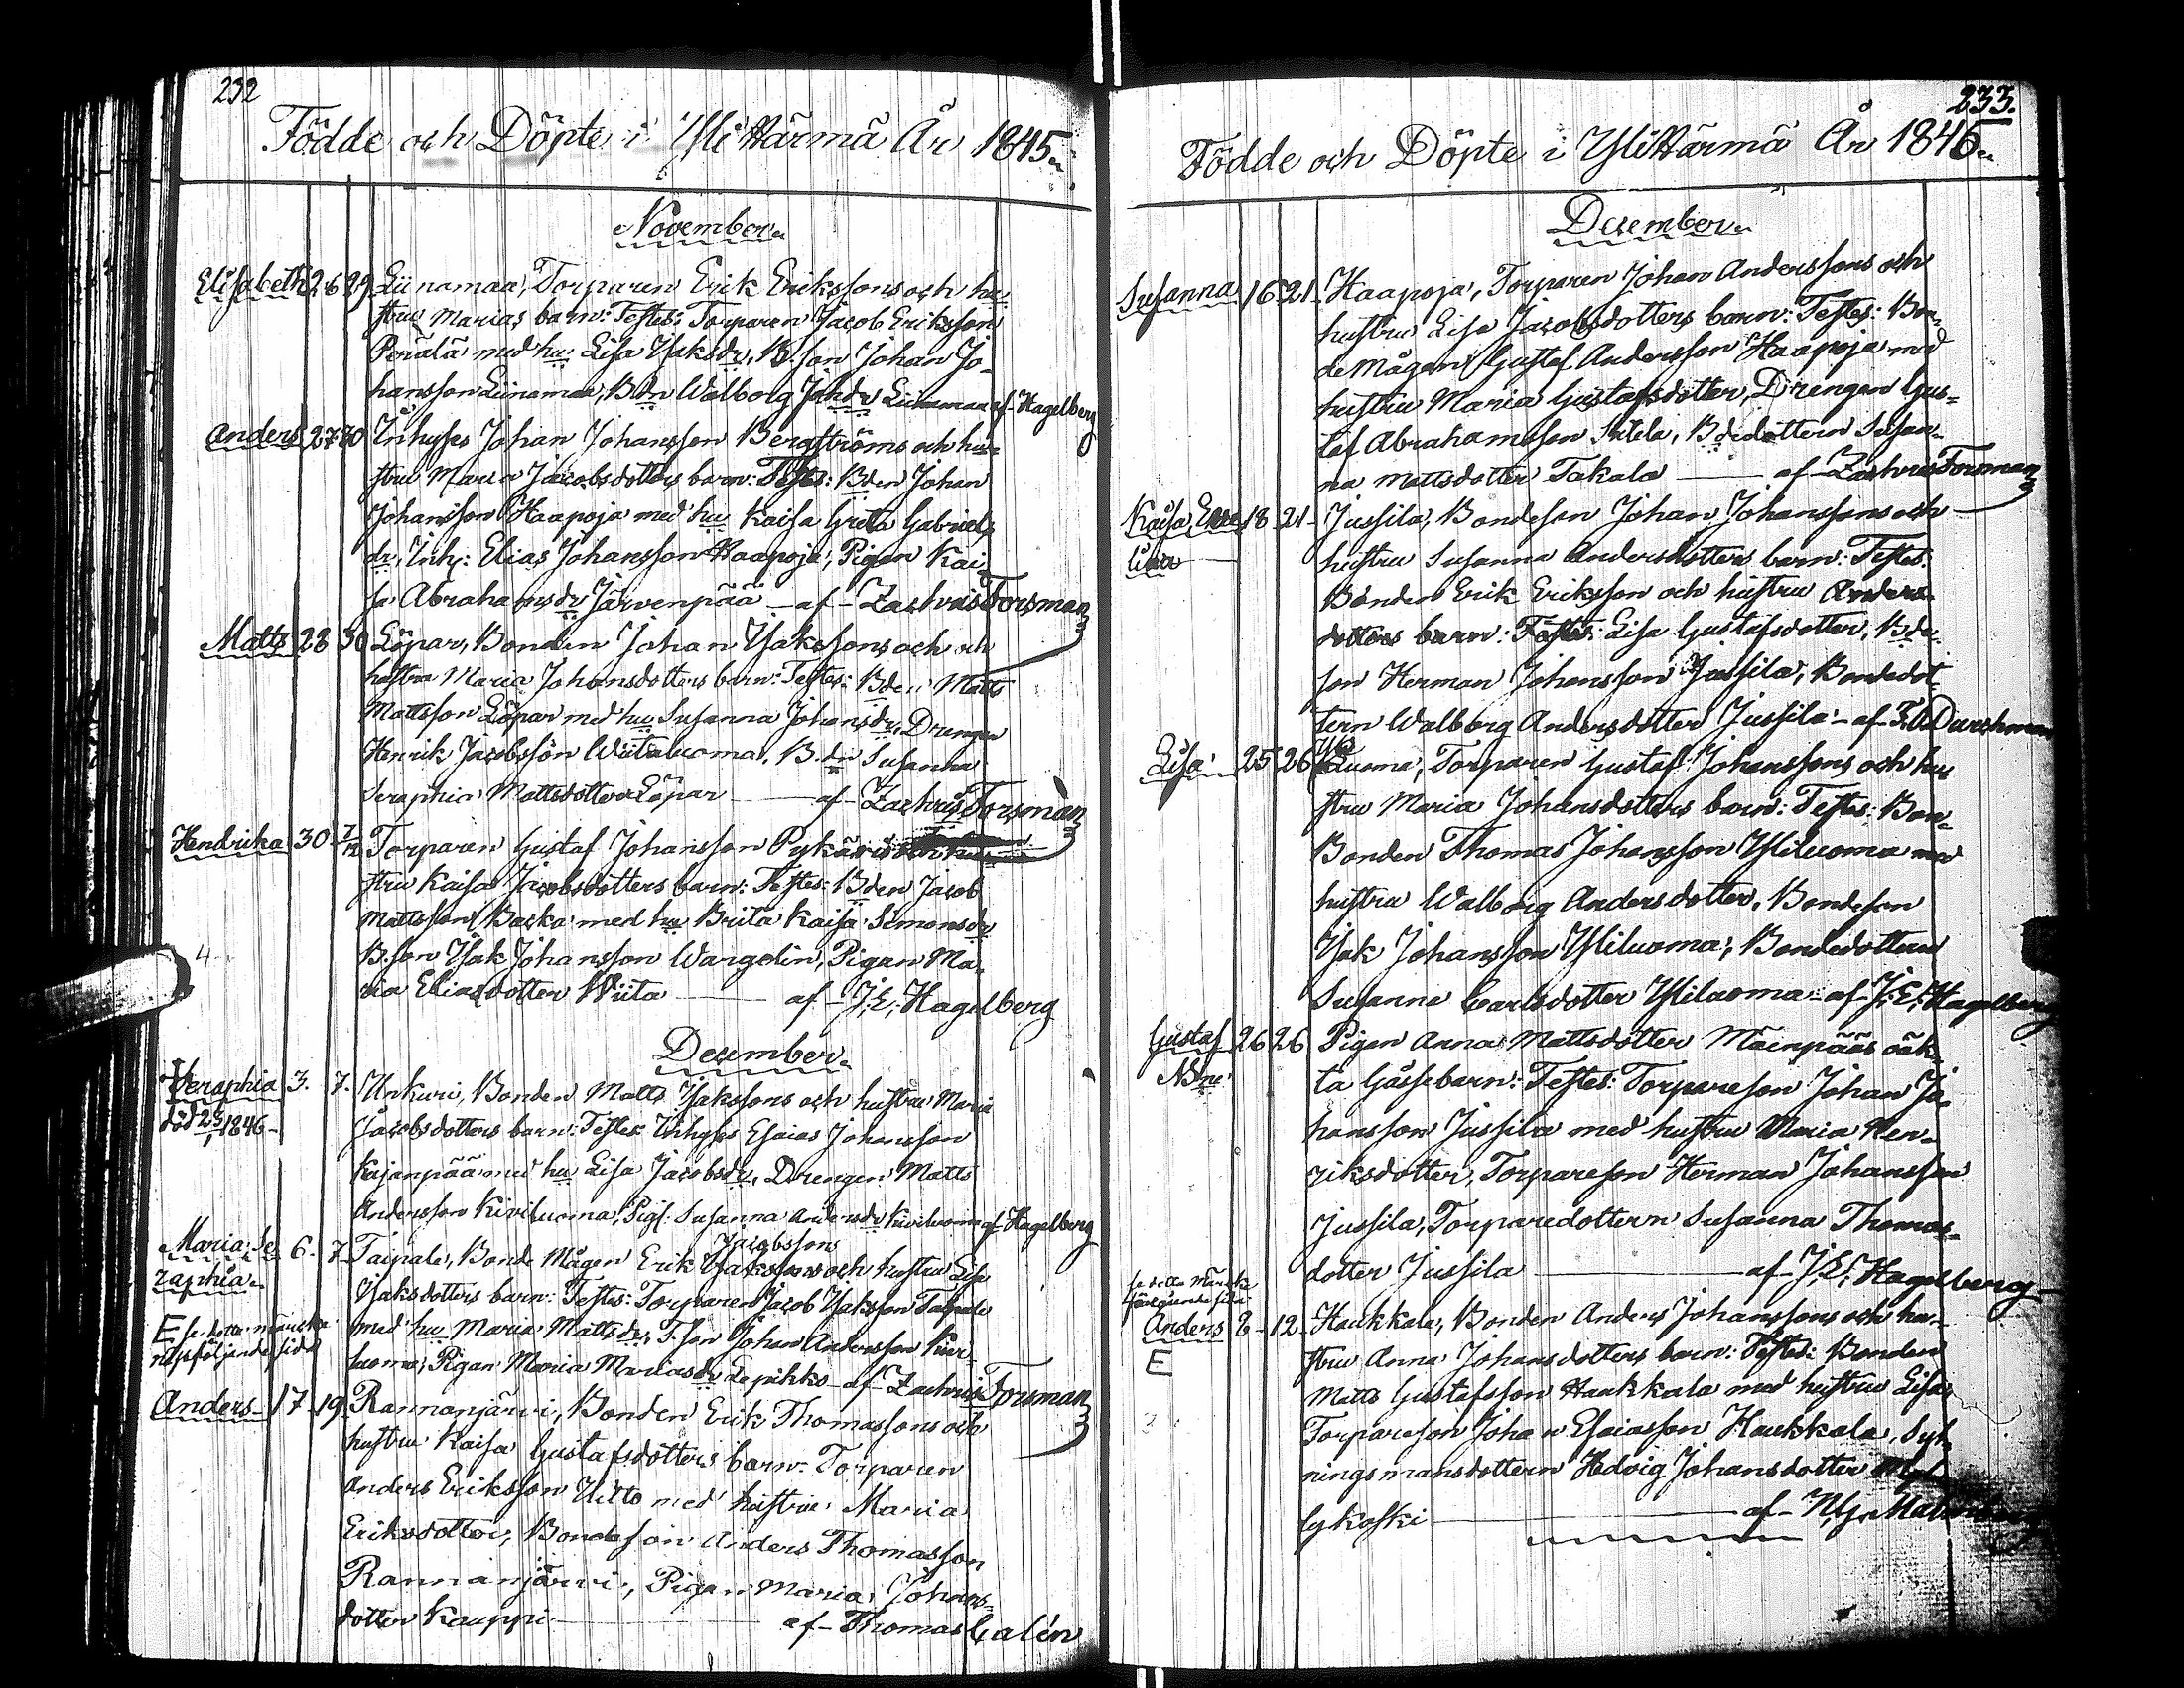 232
Födde och Döpte i YliHärmä År 1845.
November.
Elisabeth 26 29 Liinamaa, Torparen Erik Erikssons och hu
stru Marias barn: Testes: Torparen Jacob Eriksson
Perälä med hu: Lisa Isaksdr, B.son Johan Jo-
hansson Liinamaa, Bdn Walborg Joh:dr Liinamaa af Hagelberg
Anders 27 30 Inhyses Johan Johansson Bergströms och hu-
stru Maria Jacobsdotters barn: Testes: Bden Johan
Johansson Haapoja med hu Kaisa Greta Gabriels
dr, Inh: Elias Johansson Haapoja, Pigan Kai
sa Abrahamsdr Järvenpää – af – Zachris Forsman
Matts 28 30 Löpar, Bonden Johan Isakssons och och
hustru Maria Johansdotters barn: Testes: Bden Matts
Mattsson Löpar med hu Susanna Johansdr, Drengen
Henrik Jacobsson Wiitaluoma, B.dr Susanna
Seraphia Mattsdotter Löpar — af – Zachris Forsman
Hendrika 30 1/12 Torparen Gustaf Johansson Pykäris
stru Kaisa Jacobsdotters barn: Testes: Bden Jacob
Mattsson Backa med hu Brita Kaisa Simonsdr
B.son Isak Johansson Wargelin, Pigan Ma-
ria Eliasdotter Wiita — af – J. E. Hagelberg
December.
Seraphia 3. 7. Unkuri, Bonden Matts Isakssons och hustru Maria
död 23/1 1846 – Jacobsdotters barn: Testes: Inhyses Esaias Johansson
Kajanpää med hu Lisa Jacobsdr, Drengen Matts
Andersson Kiviluoma, Pig: Susanna Andersdr Kiviluoma af Hagelberg
Jacobssons
Maria Se 6. 7 Taipale, Bonde Mågen Erik Isakssons och hustru Lisa
raphia. Isaksdotters barn: Testes: Torparen Jacob Isaksson Taipale
E se detta märcke med hu Maria Mattsdr, T.son Johan Andersson
näst följande sida luoma, Pigan Maria Mariasdr Lepikko – af – Zachris Forsman
Anders 17 19 Rannanjärvi, Bonden Erik Thomassons och
hustru Kaisa Gustafsdotters barn: Torparen
Anders Eriksson Uitto med hustru Maria
Eriksdotter, Bondeson Anders Thomasson
Rannanjärvi, Pigan Maria Johans-
dotter Kauppi — af – Thomas Calén
233.
Födde och Döpte i YliHärmä År 1845.
December.
Susanna 16 21 Haapoja, Torparen Johan Anderssons och
hustru Lisa Jacobsdotters barn: Testes: Bon-
de Mågen Gustaf Andersson Haapoja med
hustru Maria Gustafsdotter, Drengen Gus-
taf Abrahamsson, Bdedottern Susan-
na Mattsdotter Takala — af – Zachris Forsman
Kaisa 18 21 Jussila, Bondeson Johan Johanssons och
lina hustru Susanna Andersdotters barn: Testes:
Bonden Erik Eriksson och hustru Anders-
dotters barn: Testes: Lisa Gustafsdotter, Bde
son Herman Johansson Jussila, Bondedot
tern Walborg Andersdotter Jussila – af
Lisa 25 26 Yliluoma, Torparen Gustaf Johanssons och hu
stru Maria Johansdotters barn: Testes: Bon-
Bonden Thomas Johansson Yliluoma med
hustru Walborg Andersdotter, Bondeson
Isak Johansson Yliluoma, Bondedottern
Susanna Carlsdotter Yliluoma af J. E. Hagelberg
Gustaf 26 26 Pigan Anna Mattsdotter Mäenpääs oäk-
ta Gåssebarn: Testes: Torpareson Johan Jo-
hansson Jussila med hustru Maria Hen-
riksdotter, Torpareson Herman Johansson
Jussila, Torparedottern Susanna Thomas-
dotter Jussila — af – J. E. Hagelberg
se detta märcke
föregående sida
Anders 8 – 12 Haukkala, Bonden Anders Johanssons och hu-
E stru Anna Johansdotters barn: Testes: Bonden
Matts Gustafsson Haukkala med hustru Lisa,
Torpareson Johan Esaiasson Haukkala, Syt-
ningsmansdottern Hedvig Johansdotter
lykoski — af –